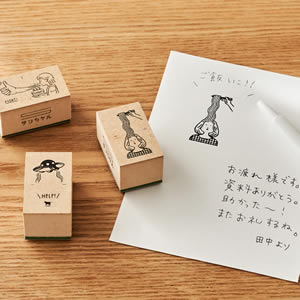 ご飯いこ!!
お疲れ様です。
資料ありがとう。
助かった〜!
またお礼するね。
田中より
HELP!